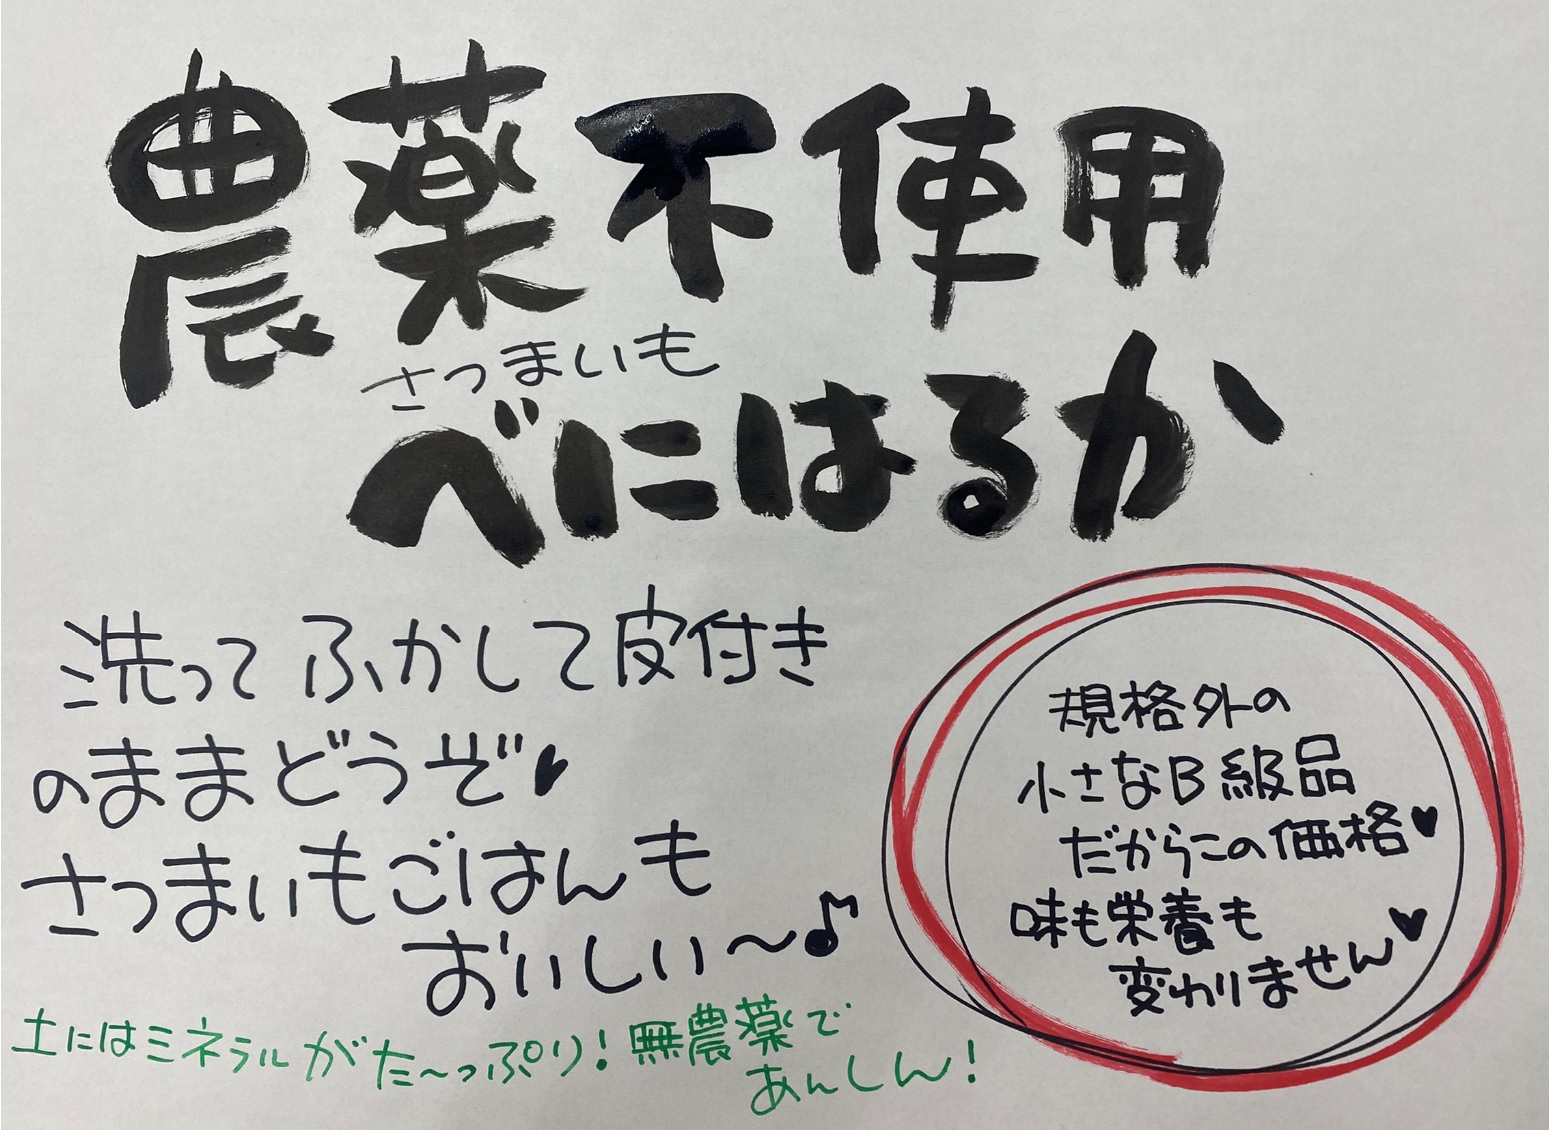 農薬不使用
さつまいも
べにはるか
洗ってふかして皮付き
のままどうぞ♥
さつまいもごはんも
おいしい〜♪
土にはミネラルがた〜っぷり!無農薬で
あんしん!
規格外の
小さなB級品
だからこの価格♥
味も栄養も
変わりません♥